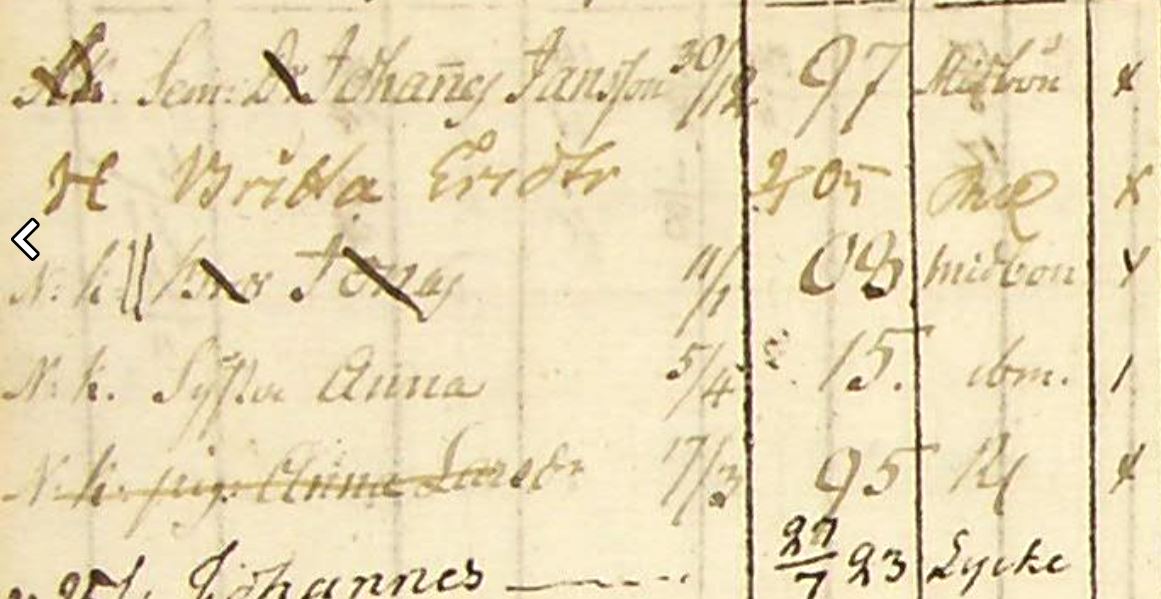 Sem: Dr Johanes Jansson 30/12 97 Midbon x
H Britta Ersdtr 05 x
N: k. Bror Jonas 11/1 08 midbon x
N: k. Syster Anna 5/4 15. ibm. /
N: k. pig. Anna Larsdr 17/3 95 x
Johannes 27/7 23 Lycke